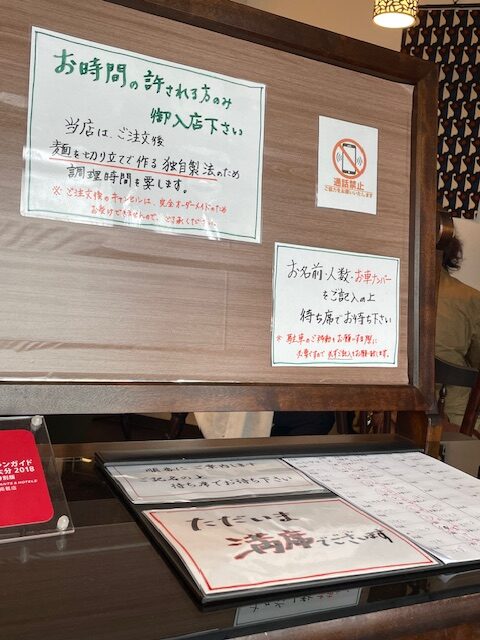 お時間の許される方のみ
御入店下さい
当店は、ご注文後
麺を切り立てで作る独自製法のため
調理時間を要します。
※ご注文後のキャンセルは、完全オーダーメイドのため
お受けできませんので、ご了承ください。
通話禁止
ご協力をお願いいたします
お名前・人数・お車ナンバー
をご記入の上
待ち席でお待ち下さい
※駐車のご移動をお願いする際に
必要ですので必ずご記入をお願い致します。
ンガイド
大分 2018
特別版
順番にご案内します
ご記名の上
待ち席でお待ち下さい
ただいま
満席でございます